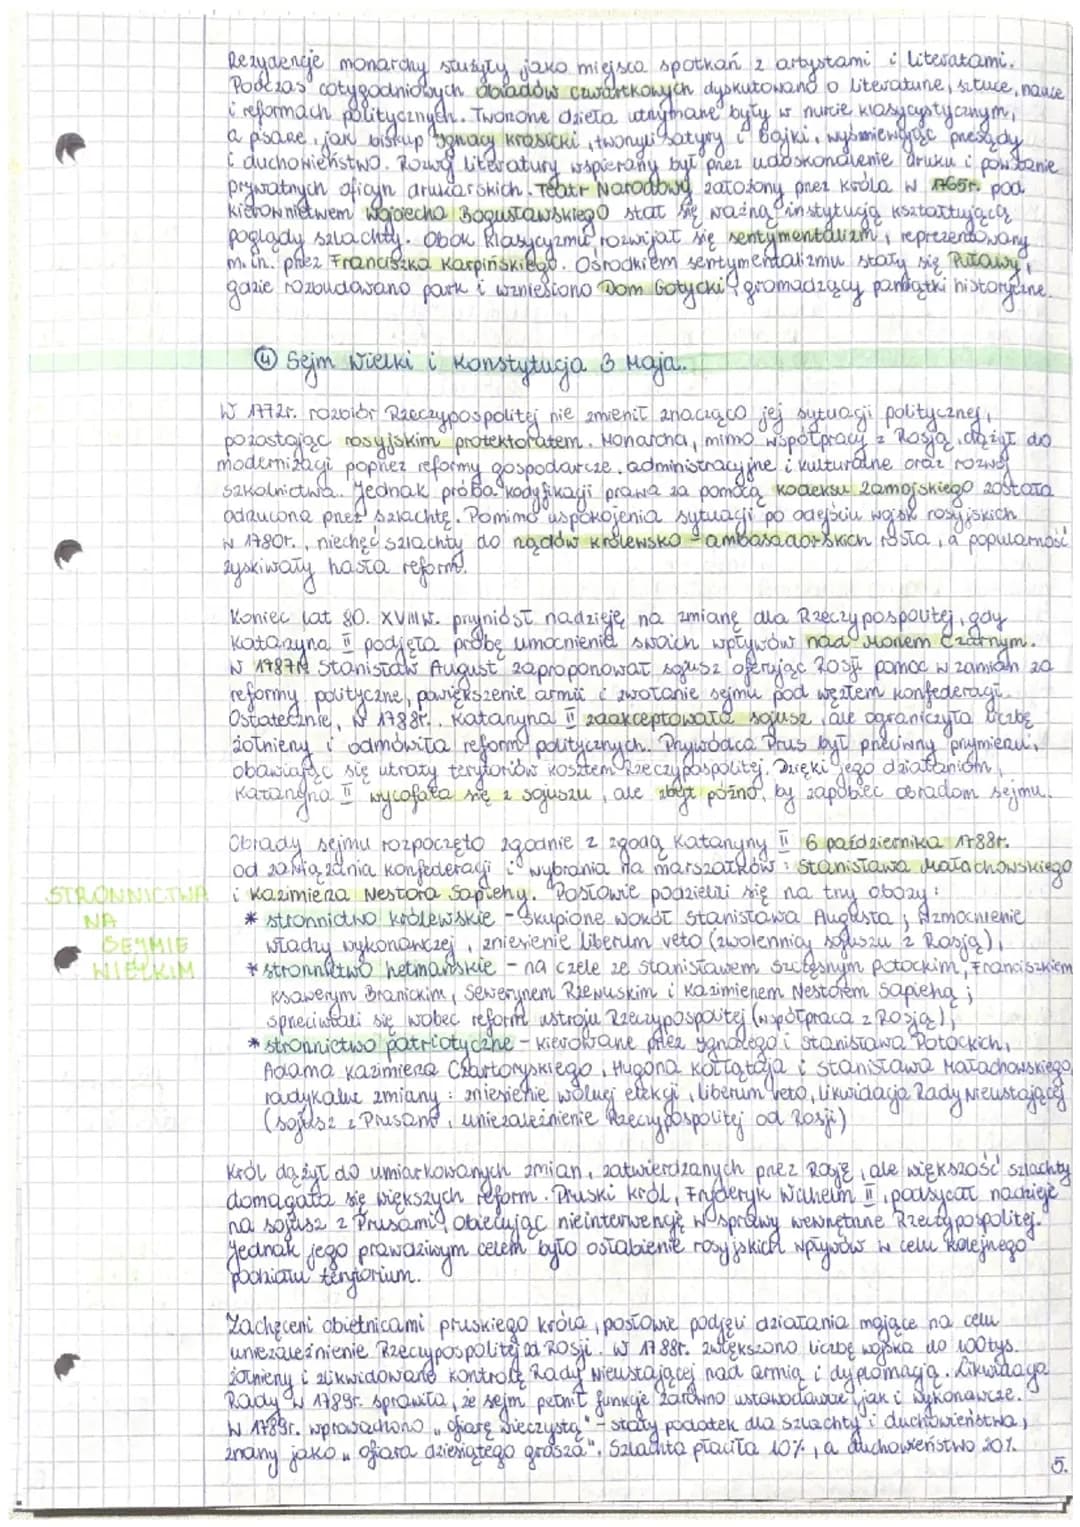 Rezydencje monarchy służyły jako miejsca spotkań z artystami i literatami.
Podczas cotygodniowych obiadów czwartkowych dyskutowano o literaturze, sztuce, nauce
i reformach politycznych. Tworzone dzieła utrzymane były w nurcie klasycystycznym,
a pisarze, jak biskup Ignacy Krasicki, tworzyli satyry i bajki, wyśmiewając przesądy
i duchowieństwo. Rozwój literatury wspierany był przez udoskonalenie druku i powstanie
prywatnych oficyn drukarskich. Teatr Narodowy założony przez króla w 1765r. pod
kierownictwem Wojciecha Bogusławskiego stał się ważną instytucją kształtującą
poglądy szlachty. Obok klasycyzmu rozwijał się sentymentalizm, reprezentowany
m.in. przez Franciszka Karpińskiego. Ośrodkiem sentymentalizmu stały się Puławy,
gdzie rozbudowano park i wzniesiono Dom Gotycki, gromadzący pamiątki historyczne.
④ Sejm Wielki i Konstytucja 3 Maja.
W 1772r. rozbiór Rzeczypospolitej nie zmienił znacząco jej sytuacji politycznej,
pozostając rosyjskim protektoratem. Monarcha, mimo współpracy z Rosją, dążył do
modernizacji poprzez reformy gospodarcze, administracyjne i kulturalne oraz rozwój
szkolnictwa. Jednak próba kodyfikacji prawa za pomocą kodeksu Zamojskiego została
odrzucona przez szlachtę. Pomimo uspokojenia sytuacji po odejściu wojsk rosyjskich
w 1780r., niechęć szlachty do rządów królewsko - ambasadorskich rosła, a popularność
zyskiwały hasła reform.
Koniec lat 80. XVIIIw. przyniósł nadzieję na zmianę dla Rzeczypospolitej, gdy
Katarzyna II podjęła próbę umocnienia swoich wpływów nad Morzem Czarnym.
W 1787r. Stanisław August zaproponował sojusz oferując Rosji pomoc w zamian za
reformy polityczne, powiększenie armii i zwołanie sejmu pod węzłem konfederacji.
Ostatecznie, w 1788r. Katarzyna II zaakceptowała sojusz, ale ograniczyła liczbę
żołnierzy i odmówiła reform politycznych. Przywódca Prus był przeciwny przymierzu,
obawiając się utraty terytoriów kosztem Rzeczypospolitej. Dzięki jego działaniom,
Katarzyna II wycofała się z sojuszu, ale zbyt późno, by zapobiec obradom sejmu.
Obrady sejmu rozpoczęto zgodnie z zgodą Katarzyny II 6 października 1788r.
od zawiązania konfederacji i wybrania na marszałków: Stanisława Małachowskiego
i Kazimierza Nestora Sapiehy. Posłowie podzielili się na trzy obozy:
STRONNICTWA
NA
SEJMIE
WIELKIM
* stronnictwo królewskie - skupione wokół Stanisława Augusta; wzmocnienie
władzy wykonawczej, zniesienie liberum veto (zwolennicy sojuszu z Rosją),
* stronnictwo hetmańskie - na czele ze Stanisławem Szczęsnym Potockim, Franciszkiem
Ksawerym Branickim, Sewerynem Rzewuskim i Kazimierzem Nestorem Sapiehą;
sprzeciwiali się wobec reform ustroju Rzeczypospolitej (współpraca z Rosją),
* stronnictwo patriotyczne - kierowane przez Ignacego i Stanisława Potockich,
Adama Kazimierza Czartoryskiego, Hugona Kołłątaja i Stanisława Małachowskiego,
radykalne zmiany: zniesienie wolnej elekcji, liberum veto, likwidacja Rady Nieustającej
(sojusz z Prusami, uniezależnienie Rzeczypospolitej od Rosji)
Król dążył do umiarkowanych zmian, zatwierdzanych przez Rosję, ale większość szlachty
domagała się większych reform. Pruski król, Fryderyk Wilhelm II, podsycał nadzieje
na sojusz z Prusami, obiecując nieinterwencję w sprawy wewnętrzne Rzeczypospolitej.
Jednak jego prawdziwym celem było osłabienie rosyjskich wpływów w celu kolejnego
podziału terytorium.
Zachęceni obietnicami pruskiego króla, posłowie podjęli działania mające na celu
uniezależnienie Rzeczypospolitej od Rosji. W 1788r. zwiększono liczbę wojska do 100tys.
żołnierzy i zlikwidowano kontrolę Rady Nieustającej nad armią i dyplomacją. Likwidacja
Rady w 1789r. sprawiła, że sejm pełnił funkcje zarówno ustawodawcze, jak i wykonawcze.
W 1789r. wprowadzono „ofiarę wieczystą" - stały podatek dla szlachty i duchowieństwa,
znany jako „ofiara dziesiątego grosza". Szlachta płaciła 10%, a duchowieństwo 20%.
5.